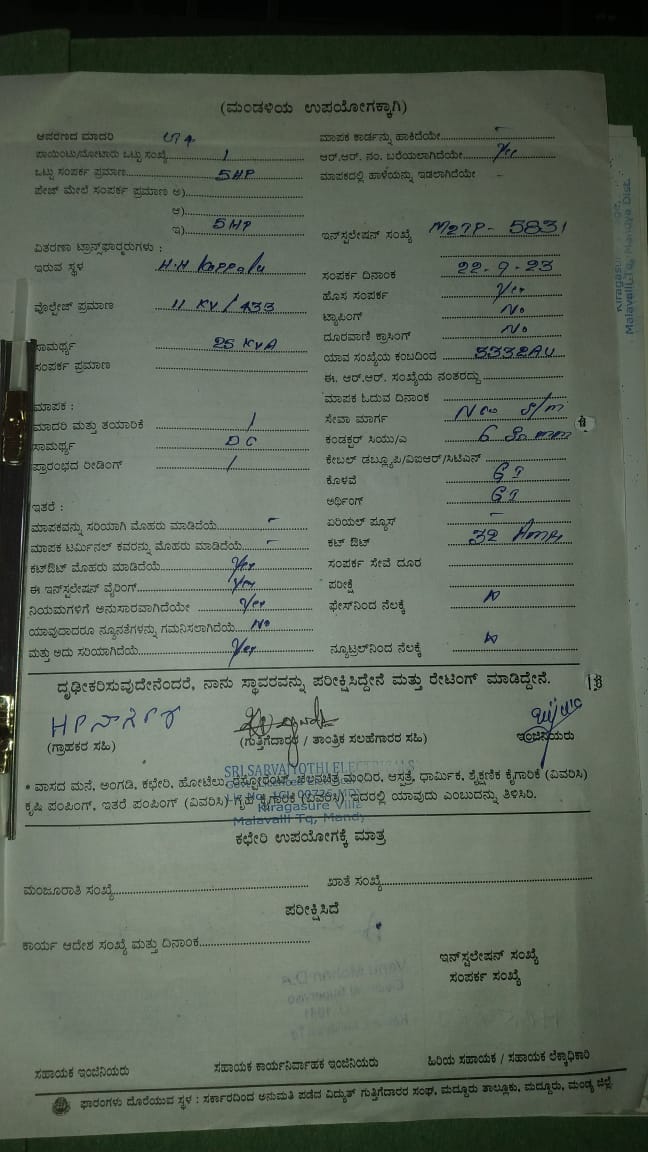 (ಮಂಡಳಿಯ ಉಪಯೋಗಕ್ಕಾಗಿ)
ಆವರಣದ ಮಾದರಿ
ಮಾಪಕ ಕಾರ್ಡನ್ನು ಹಾಕಿದೆಯೇ
ಪಾಯಿಂಟು/ಮೋಟಾರು ಒಟ್ಟು ಸಂಖ್ಯೆ 1
ಆರ್.ಆರ್. ನಂ. ಬರೆಯಲಾಗಿದೆಯೇ Yes
ಒಟ್ಟು ಸಂಪರ್ಕ ಪ್ರಮಾಣ 5HP
ಮಾಪಕದಲ್ಲಿ ಹಾಳೆಯನ್ನು ಇಡಲಾಗಿದೆಯೇ -
ಪೇಜ್ ಮೇಲೆ ಸಂಪರ್ಕ ಪ್ರಮಾಣ ಅ)
ಆ)
ಇ) 5HP
ಇನ್‌ಸ್ಟಲೇಷನ್ ಸಂಖ್ಯೆ M27P- 5831
ವಿತರಣಾ ಟ್ರಾನ್ಸ್‌ಫಾರ್‍ಮರುಗಳು :
ಇರುವ ಸ್ಥಳ H.H Koppalu
ಸಂಪರ್ಕ ದಿನಾಂಕ 22-9-23
ಹೊಸ ಸಂಪರ್ಕ Yes
ವೋಲ್ಟೇಜ್ ಪ್ರಮಾಣ 11 KV/433
ಟ್ಯಾಪಿಂಗ್ No
ದೂರವಾಣಿ ಕ್ರಾಸಿಂಗ್ No
ಸಾಮರ್ಥ್ಯ 25 KVA
ಯಾವ ಸಂಖ್ಯೆಯ ಕಂಬದಿಂದ
ಸಂಪರ್ಕ ಪ್ರಮಾಣ
ಈ. ಆರ್.ಆರ್. ಸಂಖ್ಯೆಯ ನಂತರದ್ದು
ಮಾಪಕ ಓದುವ ದಿನಾಂಕ
ಮಾಪಕ :
ಸೇವಾ ಮಾರ್ಗ
ಮಾದರಿ ಮತ್ತು ತಯಾರಿಕೆ /
ಕಂಡಕ್ಟರ್ ಸಿಯು/ಎ
ಸಾಮರ್ಥ್ಯ DC
ಕೇಬಲ್ ಡಬ್ಲ್ಯೂಪಿ/ವಿಐಆರ್/ಸಿಟಿಎನ್
ಪ್ರಾರಂಭದ ರೀಡಿಂಗ್ /
ಕೊಳವೆ GI
ಅರ್ಥಿಂಗ್ GI
ಇತರೆ :
ಏರಿಯಲ್ ಫ್ಯೂಸ್ -
ಮಾಪಕವನ್ನು ಸರಿಯಾಗಿ ಮೊಹರು ಮಾಡಿದೆಯೆ -
ಕಟ್ ಔಟ್ 32 Amps
ಮಾಪಕ ಟರ್ಮಿನಲ್ ಕವರನ್ನು ಮೊಹರು ಮಾಡಿದೆಯೆ -
ಕಟ್‌ಔಟ್ ಮೊಹರು ಮಾಡಿದೆಯೆ Yes
ಸಂಪರ್ಕ ಸೇವೆ ದೂರ
ಈ ಇನ್‌ಸ್ಟಲೇಷನ್ ವೈರಿಂಗ್ Yes
ಪರೀಕ್ಷೆ
ನಿಯಮಗಳಿಗೆ ಅನುಸಾರವಾಗಿದೆಯೇ Yes
ಫೇಸ್‌ನಿಂದ ನೆಲಕ್ಕೆ
ಯಾವುದಾದರೂ ನ್ಯೂನತೆಗಳನ್ನು ಗಮನಿಸಲಾಗಿದೆಯೆ No
ಮತ್ತು ಅದು ಸರಿಯಾಗಿದೆಯೆ Yes
ನ್ಯೂಟ್ರಲ್‌ನಿಂದ ನೆಲಕ್ಕೆ
ದೃಢೀಕರಿಸುವುದೇನೆಂದರೆ, ನಾನು ಸ್ಥಾವರವನ್ನು ಪರೀಕ್ಷಿಸಿದ್ದೇನೆ ಮತ್ತು ರೇಟಿಂಗ್ ಮಾಡಿದ್ದೇನೆ.
(ಗ್ರಾಹಕರ ಸಹಿ) (ಗುತ್ತಿಗೆದಾರರ / ತಾಂತ್ರಿಕ ಸಲಹೆಗಾರರ ಸಹಿ) ಇಂಜಿನಿಯರು
SRI.SARVAJYOTHI ELECTRICALS
• ವಾಸದ ಮನೆ, ಅಂಗಡಿ, ಕಛೇರಿ, ಹೋಟೆಲು, ರೆಸ್ಟೋರೆಂಟ್, ಚಲನಚಿತ್ರ ಮಂದಿರ, ಆಸ್ಪತ್ರೆ, ಧಾರ್ಮಿಕ, ಶೈಕ್ಷಣಿಕ ಕೈಗಾರಿಕೆ (ವಿವರಿಸಿ)
ಕೃಷಿ ಪಂಪಿಂಗ್, ಇತರೆ ಪಂಪಿಂಗ್ (ವಿವರಿಸಿ) ಗೃಹ ಕೈಗಾರಿಕೆ (ವಿವರಿಸಿ) ಇದರಲ್ಲಿ ಯಾವುದು ಎಂಬುದನ್ನು ತಿಳಿಸಿರಿ.
Kiragasure Villa
Malavalli Tq, Mandy
ಕಛೇರಿ ಉಪಯೋಗಕ್ಕೆ ಮಾತ್ರ
ಮಂಜೂರಾತಿ ಸಂಖ್ಯೆ ಖಾತೆ ಸಂಖ್ಯೆ
ಪರೀಕ್ಷಿಸಿದೆ
ಕಾರ್ಯ ಆದೇಶ ಸಂಖ್ಯೆ ಮತ್ತು ದಿನಾಂಕ
ಇನ್‌ಸ್ಟಲೇಷನ್ ಸಂಖ್ಯೆ
ಸಂಪರ್ಕ ಸಂಖ್ಯೆ
ಸಹಾಯಕ ಇಂಜಿನಿಯರು ಸಹಾಯಕ ಕಾರ್ಯನಿರ್ವಾಹಕ ಇಂಜಿನಿಯರು ಹಿರಿಯ ಸಹಾಯಕ / ಸಹಾಯಕ ಲೆಕ್ಕಾಧಿಕಾರಿ
ಫಾರಂಗಳು ದೊರೆಯುವ ಸ್ಥಳ : ಸರ್ಕಾರದಿಂದ ಅನುಮತಿ ಪಡೆದ ವಿದ್ಯುತ್ ಗುತ್ತಿಗೆದಾರರ ಸಂಘ, ಮದ್ದೂರು ತಾಲ್ಲೂಕು, ಮದ್ದೂರು, ಮಂಡ್ಯ ಜಿಲ್ಲೆ.
Malavalli Tq, Mandya Dist.